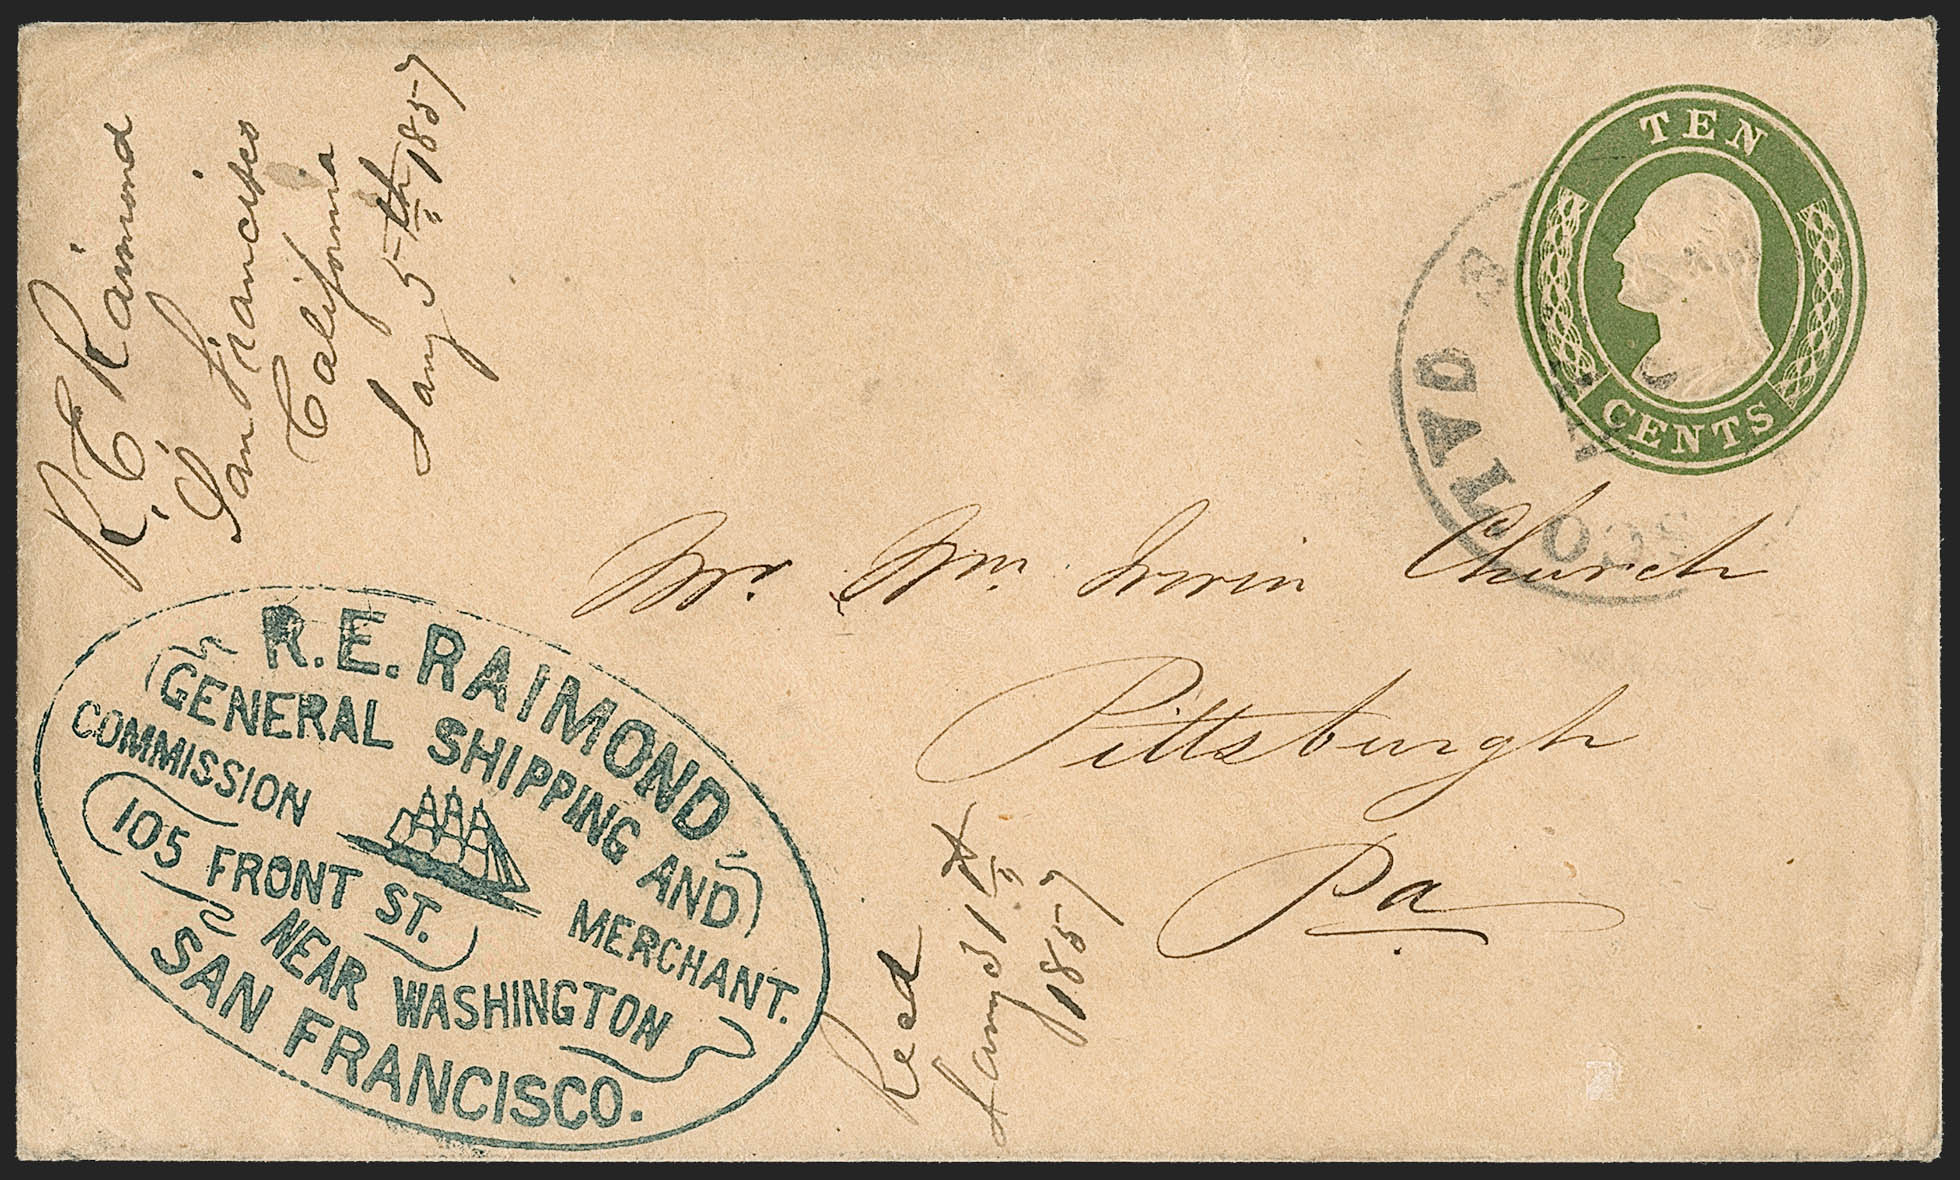 R. E. Raimond
San Francisco
California
Jany 5th 1857
TEN
CENTS
SCO CAL
Mr. Wm. Irwin Church
Pittsburgh
Pa
R.E. RAIMOND
GENERAL SHIPPING AND
COMMISSION MERCHANT.
105 FRONT ST.
NEAR WASHINGTON
SAN FRANCISCO.
Recd
Jany 31st
1857